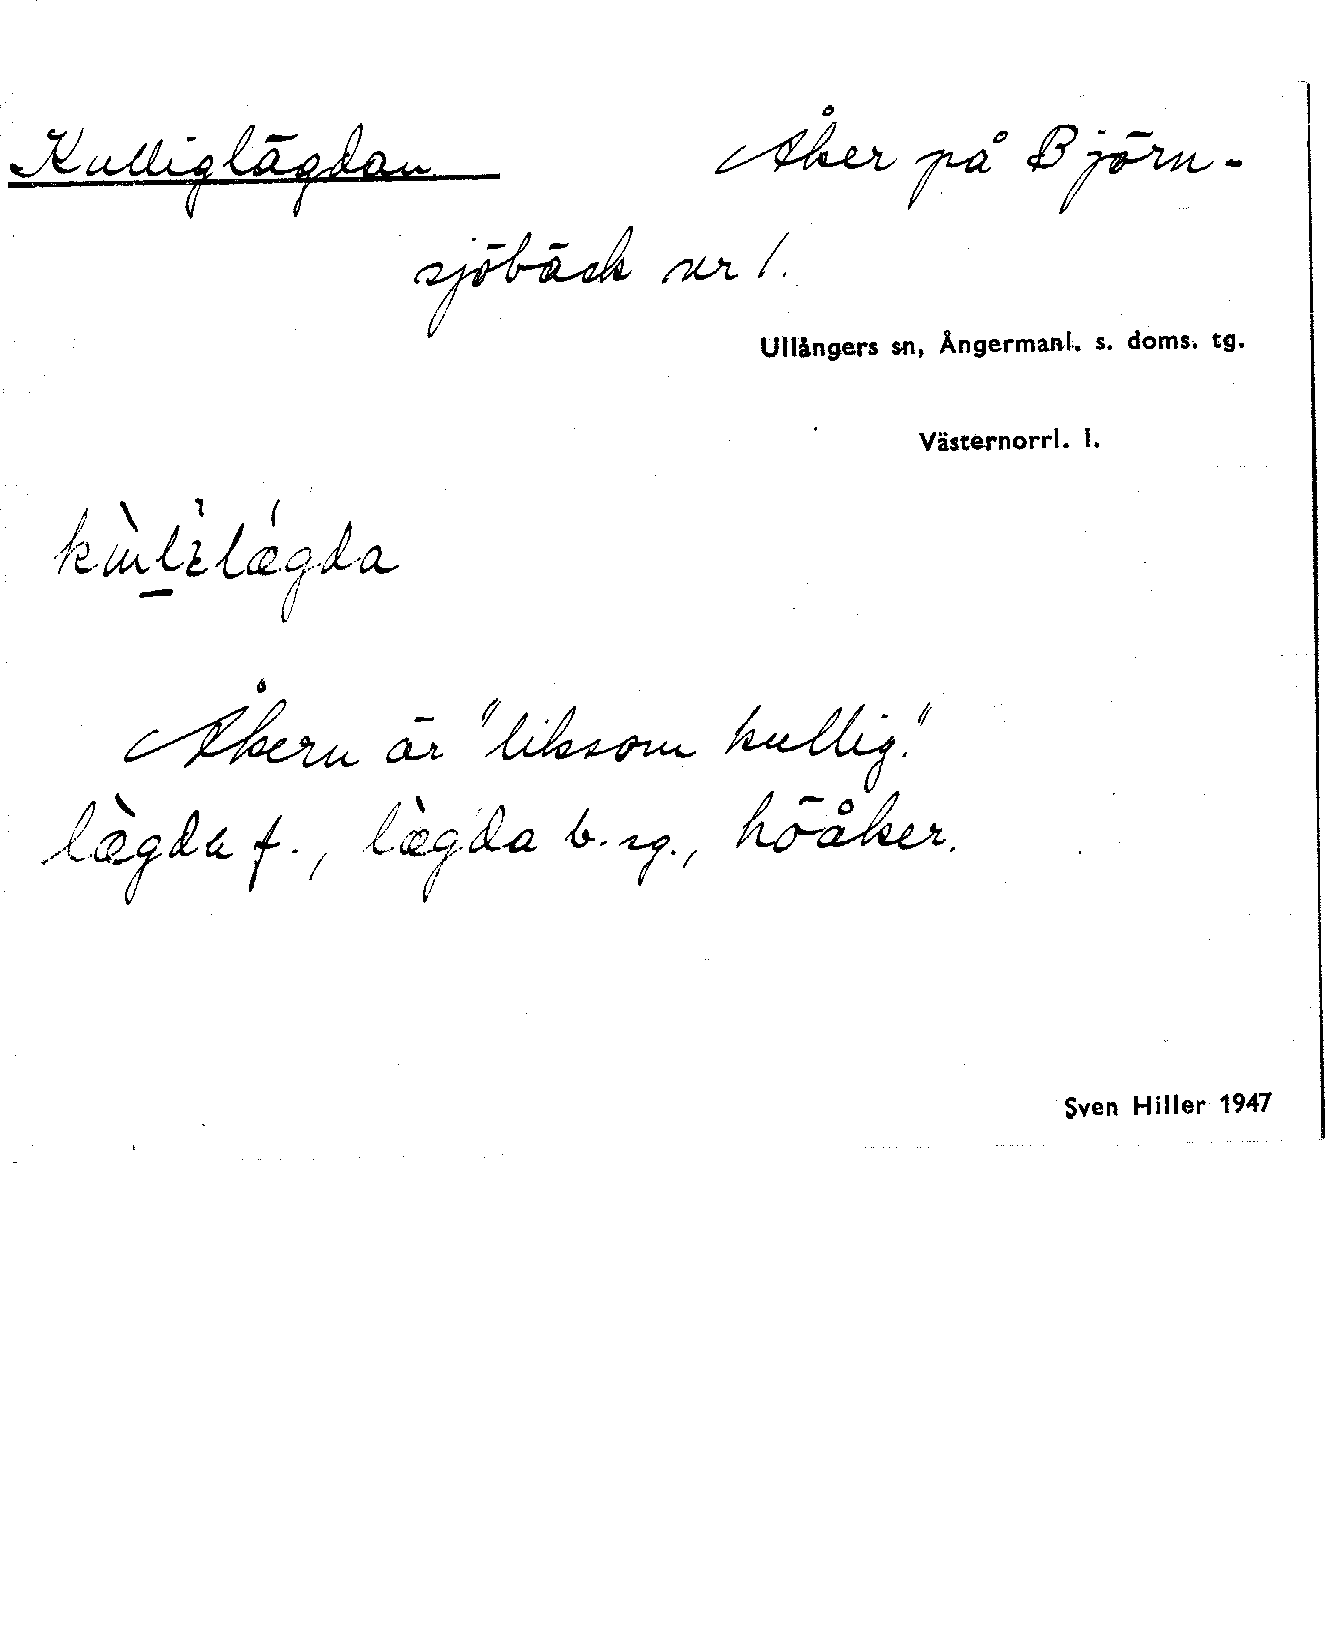 Kulliglägdan Åker på Björn-
sjöbäck nr 1.
Ullångers sn, Ångermanl. s. doms. tg.
Västernorrl. l.
kùlìlǽgda
Åkern är "liksom kullig."
læ̀gda f., læ̀gda b. sg., höåker.
Sven Hiller 1947